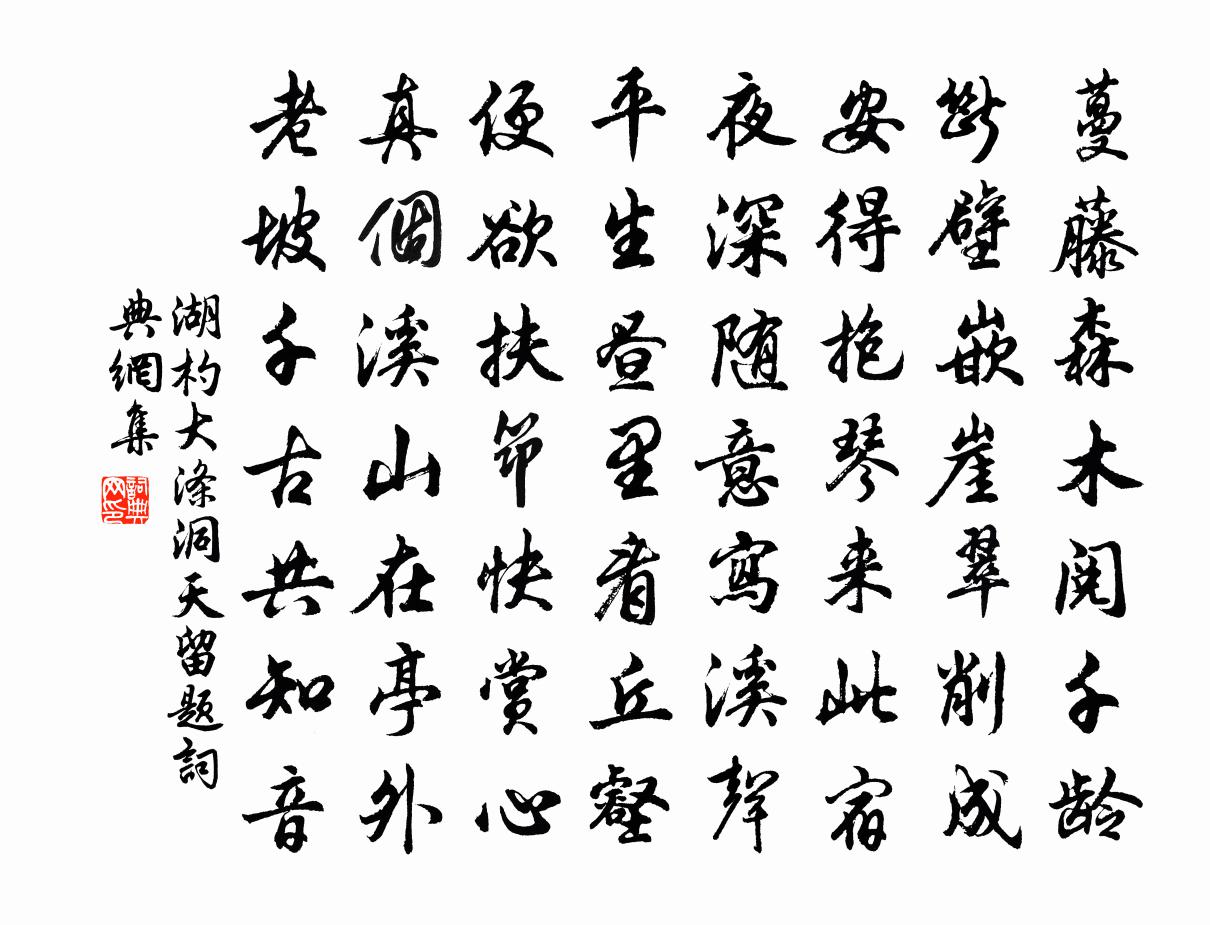 蔓藤森木阅千龄
断壁嵌崖翠削成
安得抱琴来此宿
夜深随意写溪声
平生昼里看丘壑
便欲扶筇快赏心
真個溪山在亭外
老坡千古共知音
湖杓大涤洞天留题詞
典網集
詞典网印